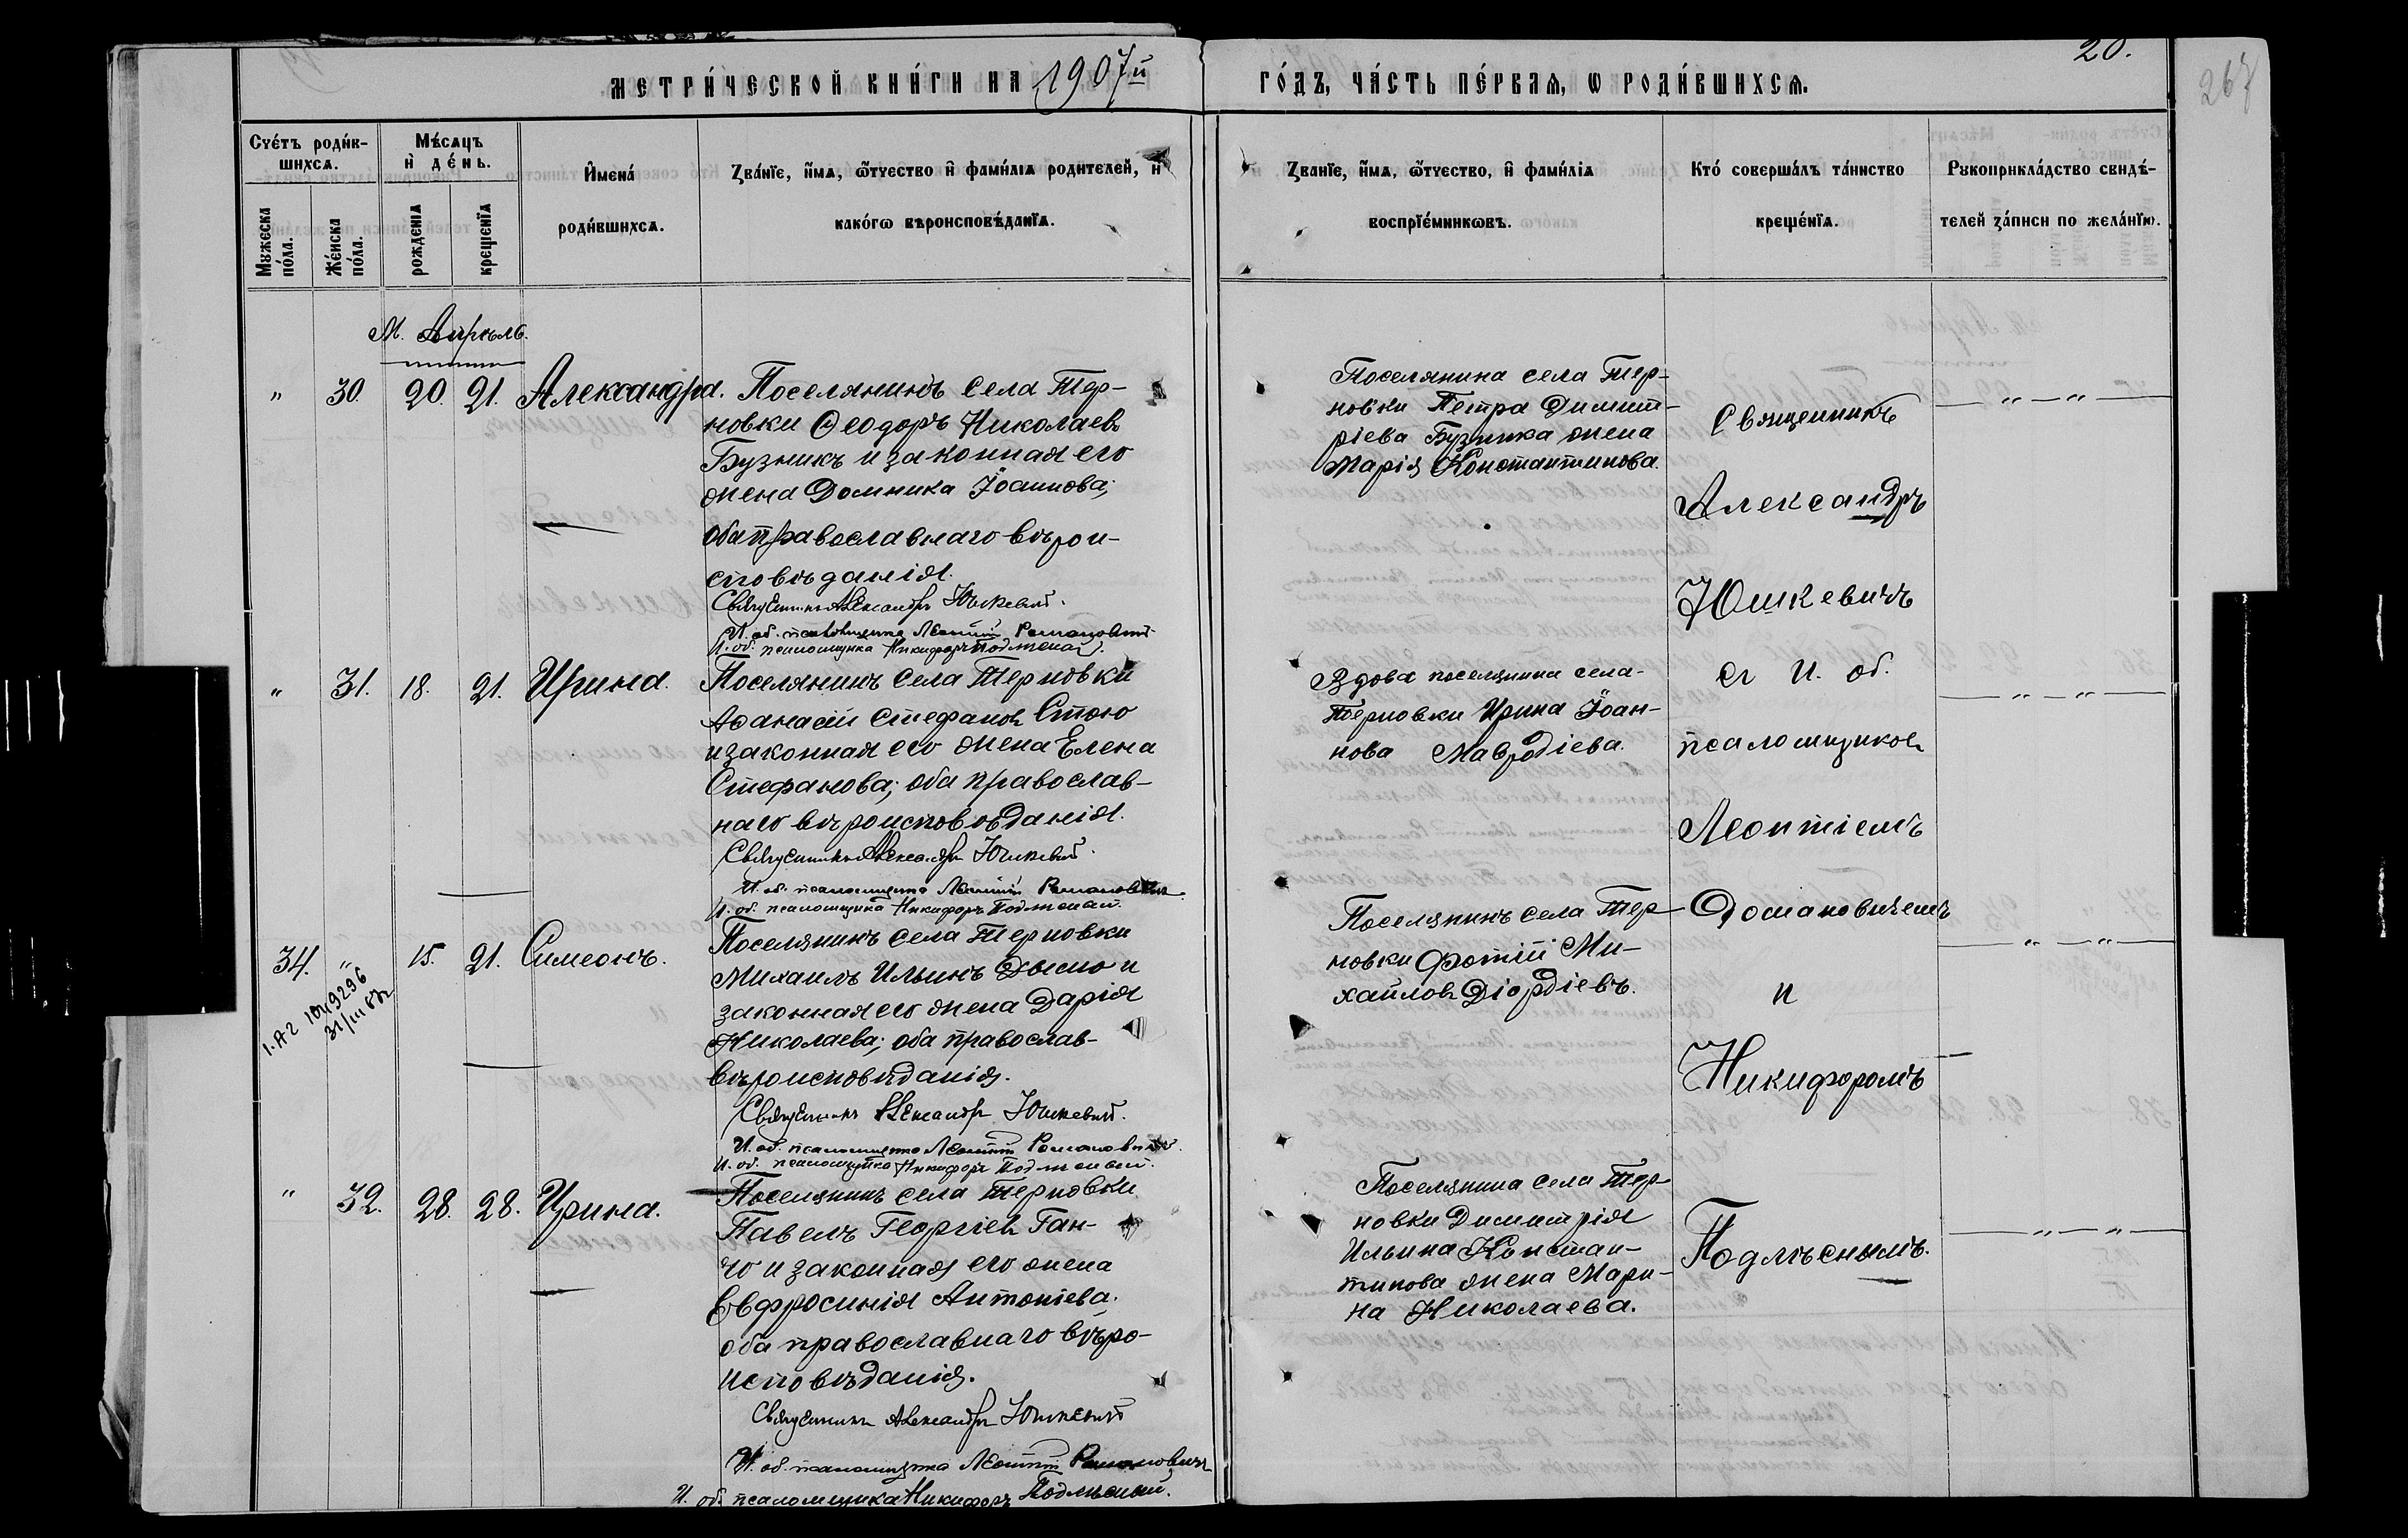 20.
267
МЕТРИ́ЧЕСКОЙ КНИ́ГИ НА 1907й
ГО́ДЪ, ЧА́СТЬ ПЕ́РВАЯ, Ѡ РОДИ́ВШИХСЯ.
Счетъ роди́в-
шихся.
Мужеска
по́ла.
Же́нска
по́ла.
Мѣ́сяцъ
и де́нь.
рожденія
крещенїя
Имена́
роди́вшихся.
Зва́нїе, и́мя, ѻ́тчество и фами́лїя родителей, и
како́гѡ вѣроисповѣ́данїя.
Зва́нїе, и́мя, ѻ́тчество, и фами́лїя
воспрїе́мниковъ.
Кто́ соверша́лъ та́инство
креще́нїя.
Рукоприкла́дство свидѣ́-
телей за́писи по жела́нїю.
М. Апрѣль.
" 30. 20. 21. Александра.
Поселянинъ села Тер-
новки Ѳеодоръ Николаевъ
Бузникъ и законная его
жена Домника Іоаннова;
оба православнаго вѣрои-
сповѣданія.
Священникъ Александръ Юшкевичъ.
И. об. псаломщика Леонтій Романовичъ
И. об. псаломщика Никифоръ Подлѣсный.
Поселянина села Тер-
новки Петра Димит-
ріева Бузника жена
Марія Константинова.
" 31. 18. 21. Ирина.
Поселянинъ села Терновки
Аѳанасій Стефановъ Стою
и законная его жена Елена
Стефанова; оба православ-
наго вѣроисповѣданія.
Священникъ Александръ Юшкевичъ.
И. об. псаломщика Леонтій Романовичъ
И. об. псаломщика Никифоръ Подлѣсный.
Вдова поселянина села
Терновки Ирина Іоан-
нова Мавродіева.
34. " 15. 21. Симеонъ.
I-АГ 1049296
31/III 87г
Поселянинъ села Терновки
Михаилъ Ильинъ Дымо и
законная его жена Дарія
Николаева; оба православ-
вѣроисповѣданія.
Священникъ Александръ Юшкевичъ.
И. об. псаломщика Леонтій Романовичъ.
И. об. псаломщика Никифоръ Подлѣсный.
Поселянинъ села Тер-
новки Фотій Ми-
хайловъ Діордіевъ.
" 32. 28. 28. Ирина.
Поселянинъ села Терновки
Павелъ Георгіевъ Ган-
чо и законная его жена
Евфросинія Антоніева.
оба православнаго вѣро-
исповѣданія.
Священникъ Александръ Юшкевичъ
И. об. псаломщика Леонтій Романовичъ
И. об. псаломщика Никифоръ Подлѣсный.
Поселянина села Тер-
новки Димитрія
Ильина Констан-
тинова жена Мари-
на Николаева.
Священникъ
Александръ
Юшкевичъ
съ И. об.
псаломщиковъ
Леонтіемъ
Романовичемъ
и
Никифоромъ
Подлѣснымъ.
— " — " —
— " — " —
— " — " —
— " — " —